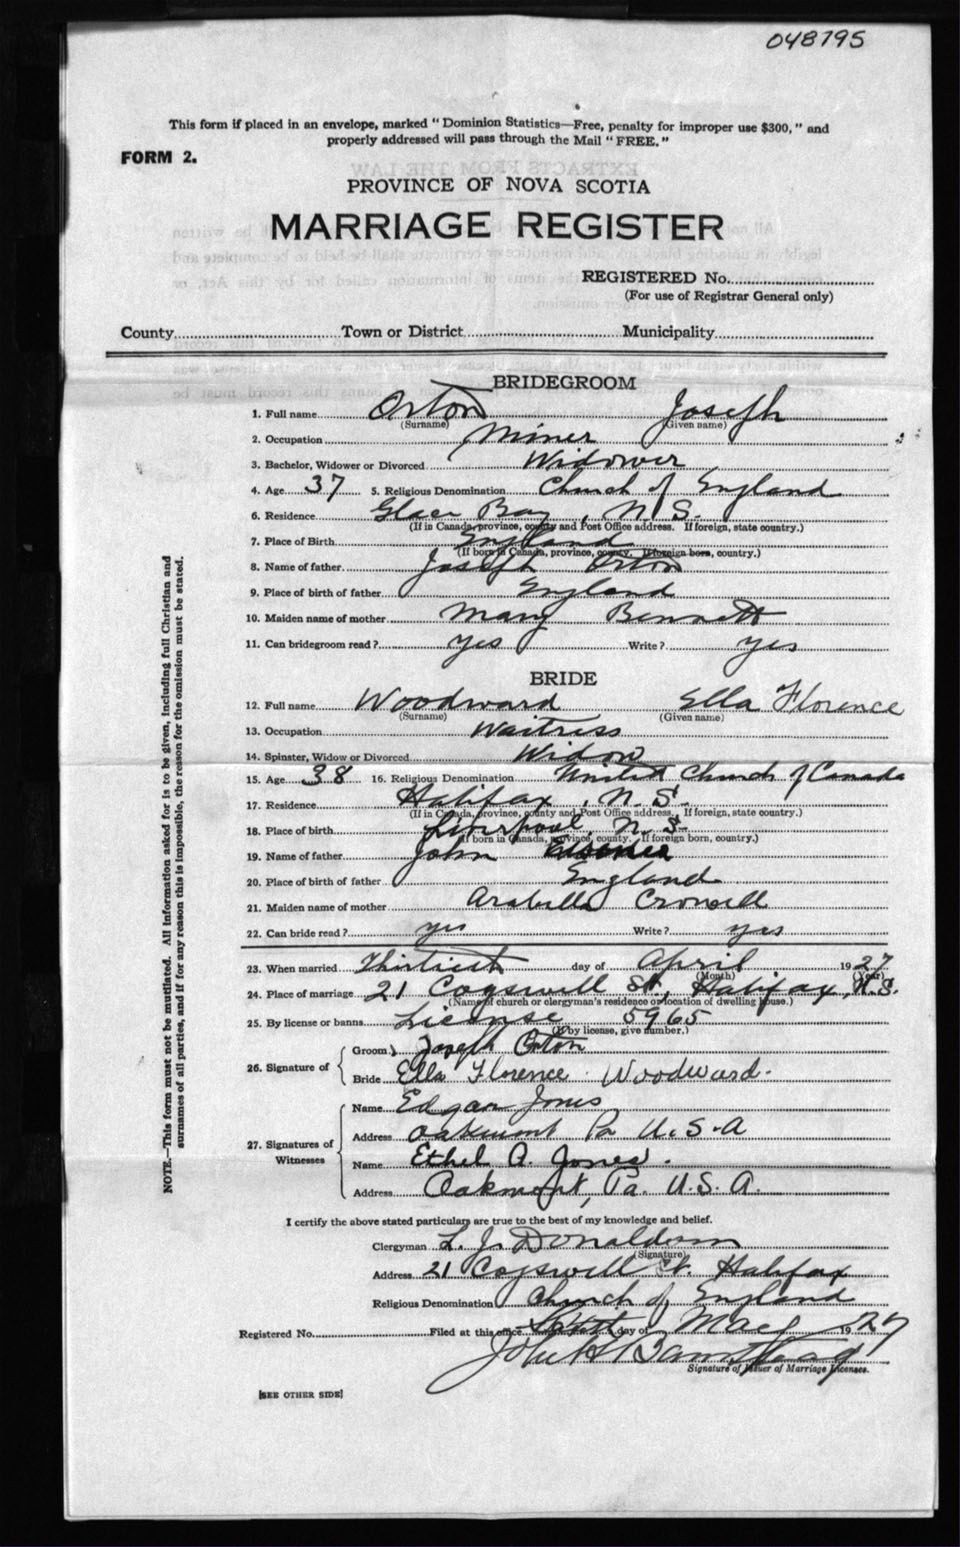 048795
This form if placed in an envelope, marked "Dominion Statistics—Free, penalty for improper use $300," and
properly addressed will pass through the Mail "FREE."
FORM 2.
PROVINCE OF NOVA SCOTIA
MARRIAGE REGISTER
REGISTERED No.
(For use of Registrar General only)
County Town or District Municipality
BRIDEGROOM
1. Full name Orton Joseph
(Surname) (Given name)
2. Occupation Miner
3. Bachelor, Widower or Divorced Widower
4. Age 37 5. Religious Denomination Church of England
6. Residence Glace Bay, N.S.
(If in Canada, province, county and Post Office address. If foreign, state country.)
7. Place of Birth England
(If born in Canada, province, county. If foreign born, country.)
8. Name of father Joseph Orton
9. Place of birth of father England
10. Maiden name of mother Mary Bennett
11. Can bridegroom read? yes Write? yes
BRIDE
12. Full name Woodward Ella Florence
(Surname) (Given name)
13. Occupation Waitress
14. Spinster, Widow or Divorced Widow
15. Age 38 16. Religious Denomination United Church of Canada
17. Residence Halifax, N.S.
(If in Canada, province, county and Post Office address. If foreign, state country.)
18. Place of birth Liverpool, N.S.
(If born in Canada, province, county. If foreign born, country.)
19. Name of father John
20. Place of birth of father England
21. Maiden name of mother Arabella Crowell
22. Can bride read? yes Write? yes
23. When married Thirtieth day of April 1927
(Month) (Year)
24. Place of marriage 21 Cogswell St., Halifax, N.S.
(Name of church or clergyman's residence or location of dwelling house.)
25. By license or banns License 5965
(If by license, give number.)
26. Signature of
Groom Joseph Orton
Bride Ella Florence Woodward.
27. Signatures of Witnesses
Name Edgar Jones
Address Oakmont Pa U.S.A
Name Ethel A. Jones.
Address Oakmont, Pa. U.S.A.
I certify the above stated particulars are true to the best of my knowledge and belief.
Clergyman L. J. Donaldson
(Signature)
Address 21 Cogswell St. Halifax
Religious Denomination Church of England
Registered No. Filed at this office day of May 1927
Signature of Issuer of Marriage Licenses.
[SEE OTHER SIDE]
NOTE.—This form must not be mutilated. All information asked for is to be given, including full Christian and
surnames of all parties, and if for any reason this is impossible, the reason for the omission must be stated.